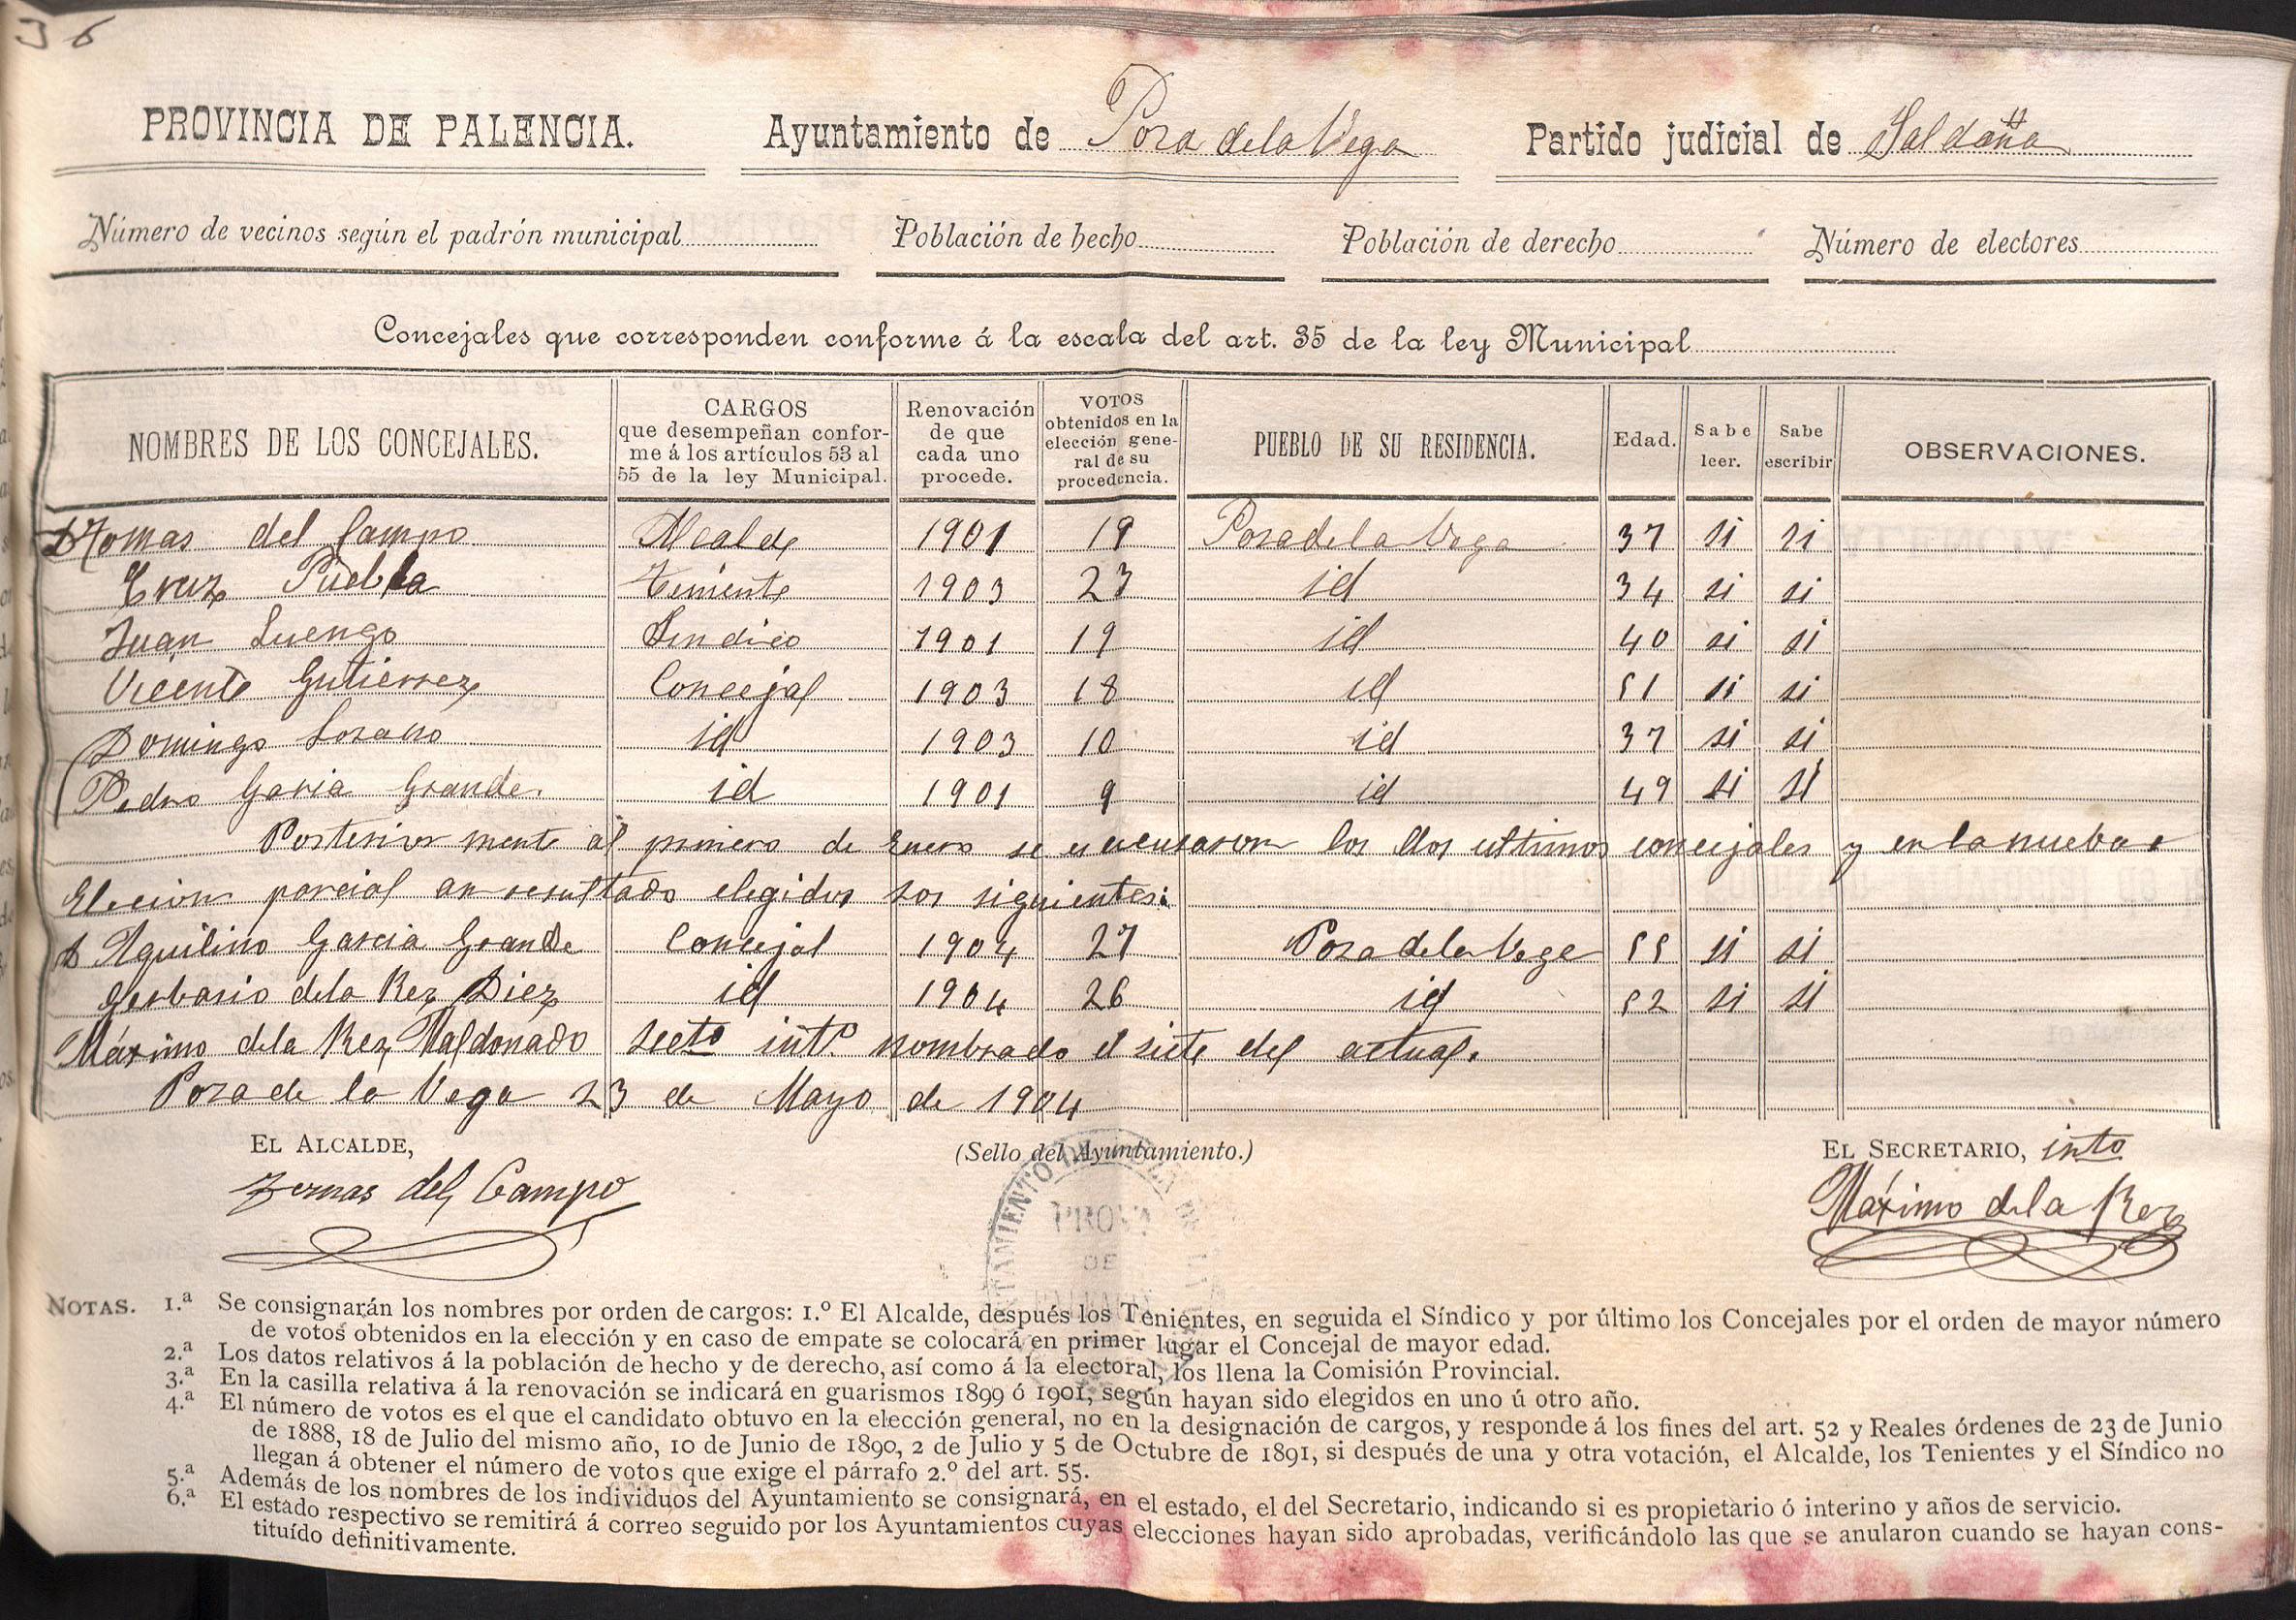 36
PROVINCIA DE PALENCIA. Ayuntamiento de Poza de la Vega Partido judicial de Saldaña
Número de vecinos según el padrón municipal Población de hecho Población de derecho Número de electores
Concejales que corresponden conforme á la escala del art. 35 de la ley Municipal
NOMBRES DE LOS CONCEJALES. CARGOS que desempeñan conforme á los artículos 53 al 55 de la ley Municipal. Renovación de que cada uno procede. VOTOS obtenidos en la elección general de su procedencia. PUEBLO DE SU RESIDENCIA. Edad. Sabe leer. Sabe escribir OBSERVACIONES.
D Tomas del Campo Alcalde 1901 19 Poza de la Vega 37 si si
Cruz Puebla Teniente 1903 23 id 34 si si
Juan Luengo Sindico 1901 19 id 40 si si
Vicente Gutierrez Concejal 1903 18 id 51 si si
Domingo Lozano id 1903 10 id 37 si si
Pedro Garia Grande. id 1901 9 id 49 si si
Posteriormente al primero de Enero se los dos ultimos concejales y en la nueba
Elecion parcial an resultado elegidos los siguientes:
D Aquilino Garcia Grande Concejal 1904 27 Poza de la Vega 55 si si
Gerbasio de la Rez Diez id 1904 26 id 52 si si
Máximo de la Rez Maldonado Secto intº. nombrado el siete del actual.
Poza de la Vega 23 de Mayo de 1904
EL ALCALDE, (Sello del Ayuntamiento.) EL SECRETARIO, into
Tomas del Campo Máximo de la Rez
PROVA
DE
NOTAS. 1.ª Se consignarán los nombres por orden de cargos: 1.º El Alcalde, después los Tenientes, en seguida el Síndico y por último los Concejales por el orden de mayor número
de votos obtenidos en la elección y en caso de empate se colocará en primer lugar el Concejal de mayor edad.
2.ª Los datos relativos á la población de hecho y de derecho, así como á la electoral, los llena la Comisión Provincial.
3.ª En la casilla relativa á la renovación se indicará en guarismos 1899 ó 1901, según hayan sido elegidos en uno ú otro año.
4.ª El número de votos es el que el candidato obtuvo en la elección general, no en la designación de cargos, y responde á los fines del art. 52 y Reales órdenes de 23 de Junio
de 1888, 18 de Julio del mismo año, 10 de Junio de 1890, 2 de Julio y 5 de Octubre de 1891, si después de una y otra votación, el Alcalde, los Tenientes y el Síndico no
llegan á obtener el número de votos que exige el párrafo 2.º del art. 55.
5.ª Además de los nombres de los individuos del Ayuntamiento se consignará, en el estado, el del Secretario, indicando si es propietario ó interino y años de servicio.
6.ª El estado respectivo se remitirá á correo seguido por los Ayuntamientos cuyas elecciones hayan sido aprobadas, verificándolo las que se anularon cuando se hayan cons-
tituído definitivamente.